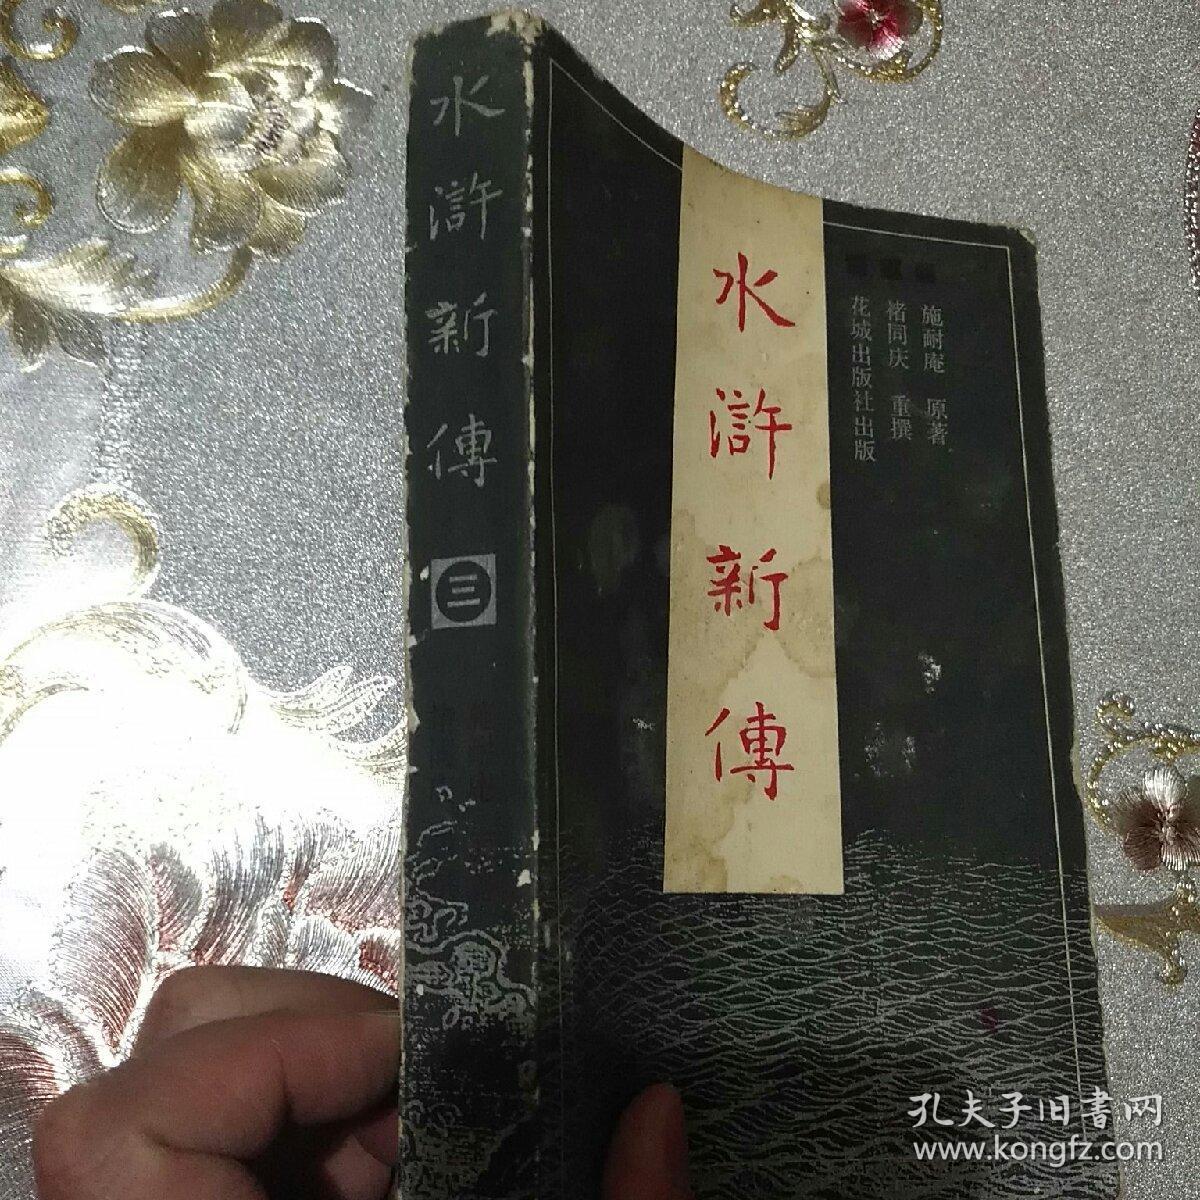 水滸新傳
三
水滸新傳
施耐庵 原著
褚同庆 重撰
花城出版社出版
孔夫子旧書网
www.kongfz.com